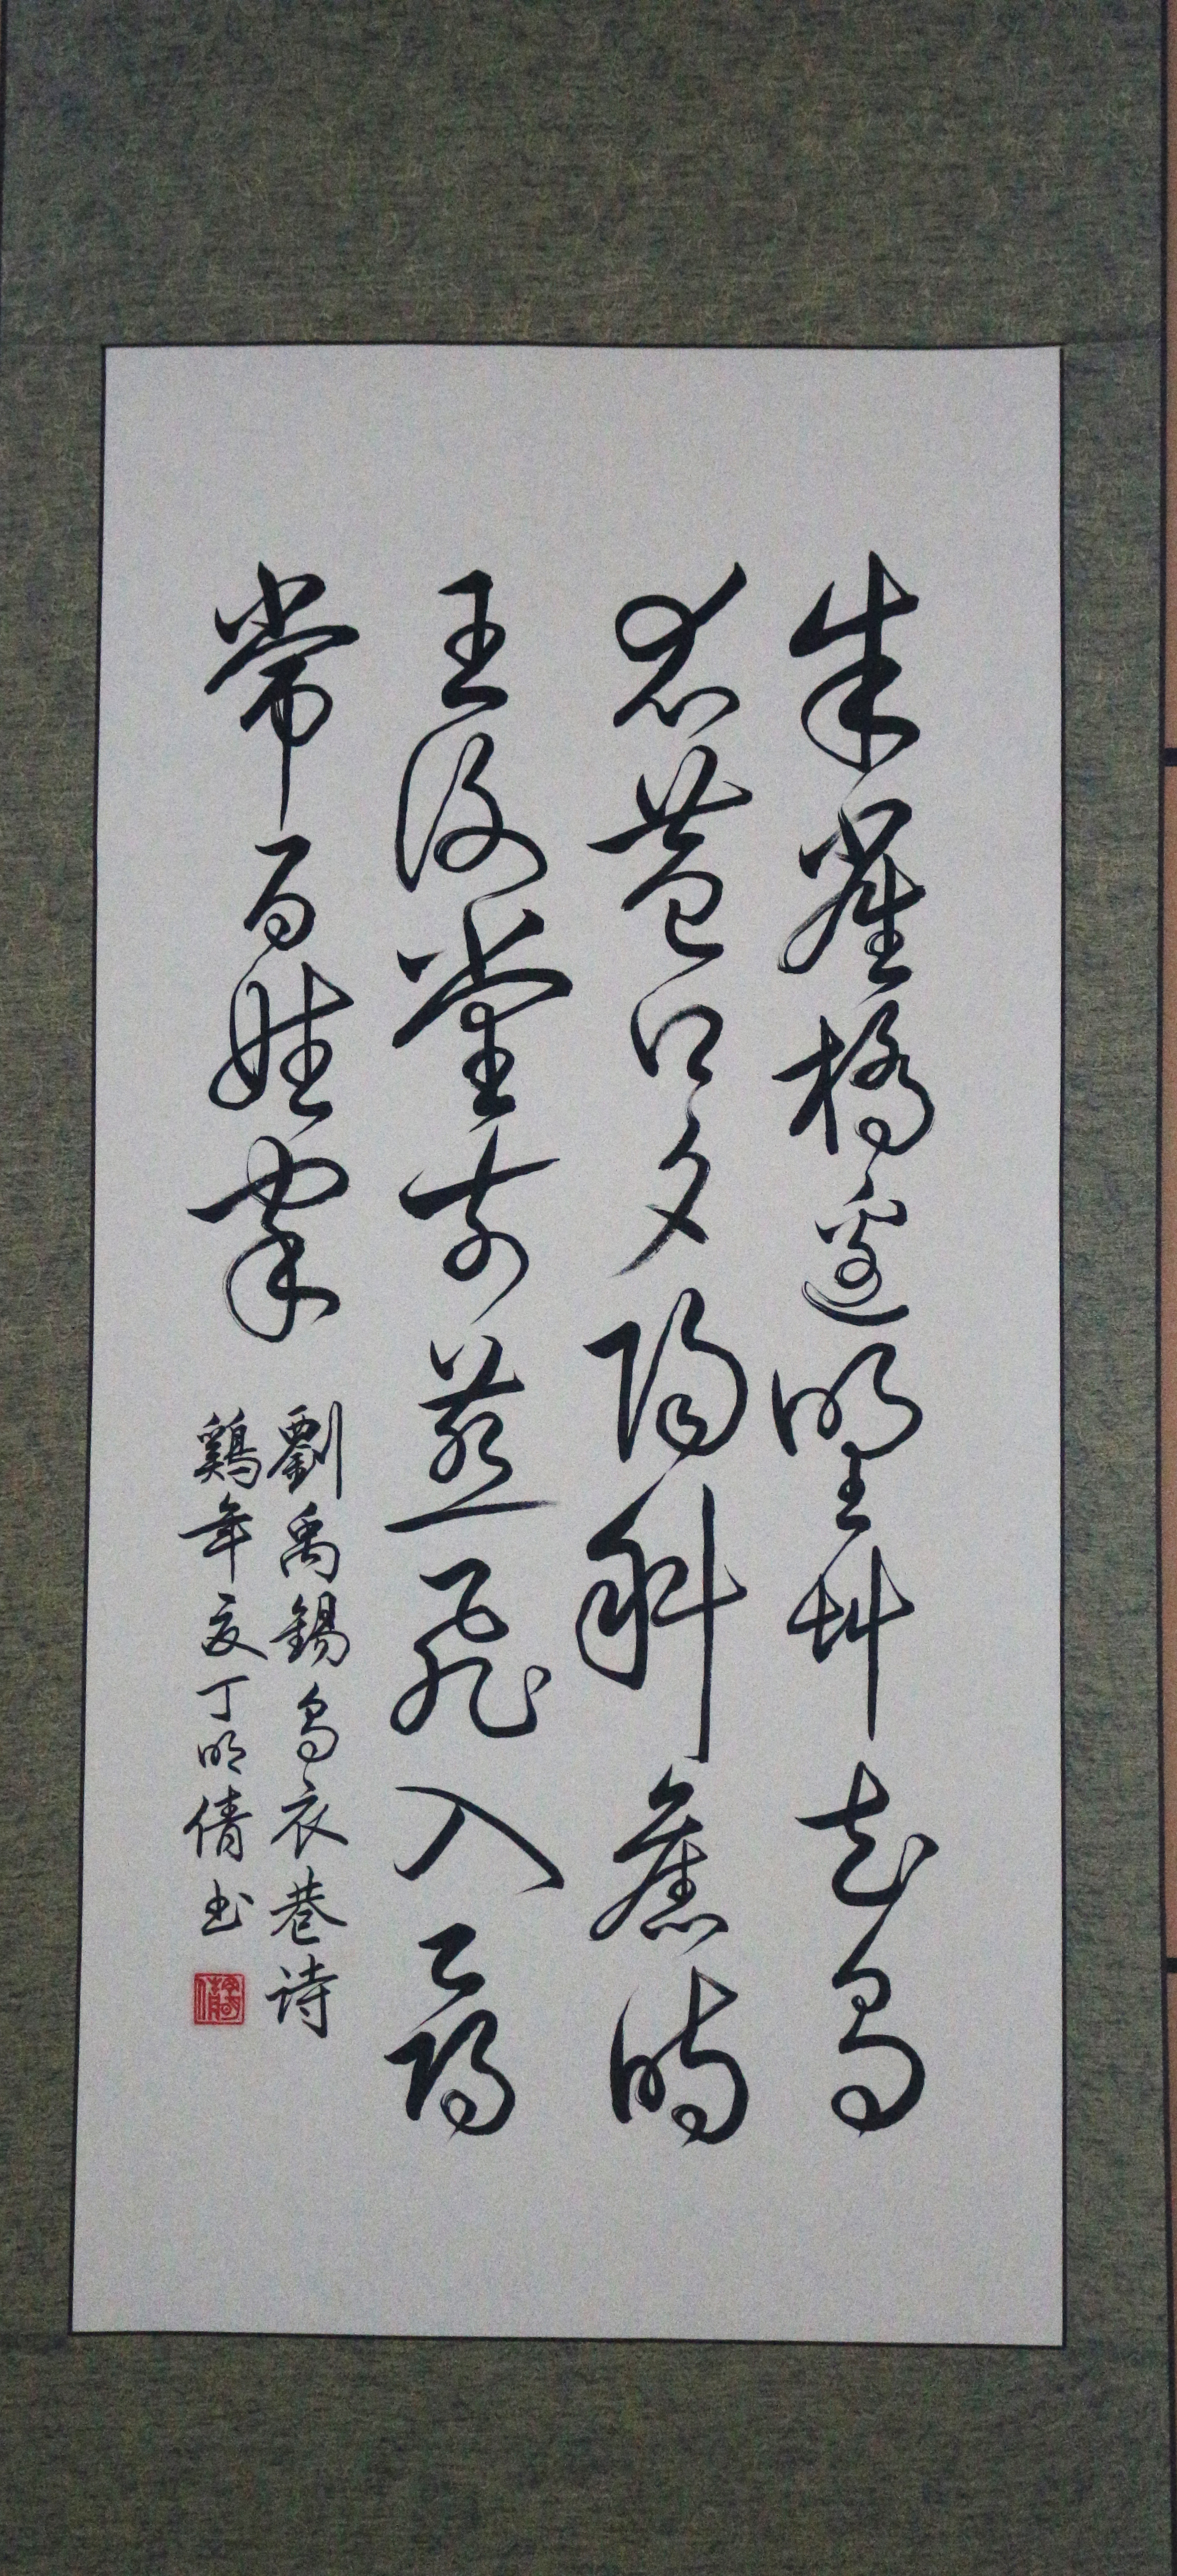 朱雀橋邊野草花烏
衣巷口夕陽斜舊時
王謝堂前燕飛入尋
常百姓家
劉禹錫烏衣巷詩
鷄年夏丁明倩書